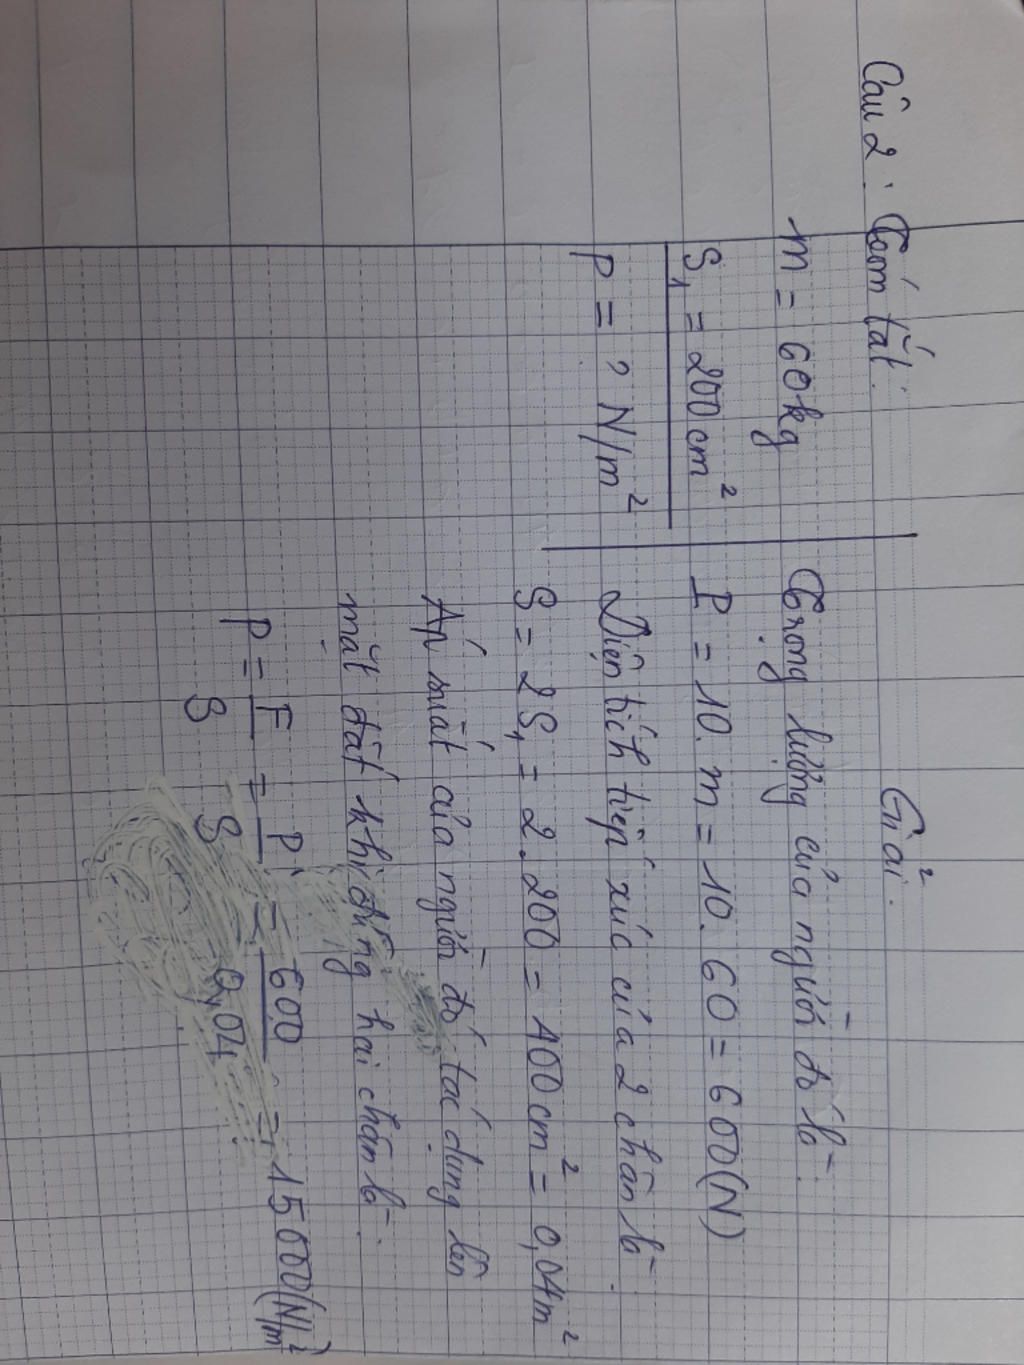 Câu 2: Tóm tắt:
m = 60kg
S₁ = 200cm²
p = ? N/m²
Giải:
Trọng lượng của người đó là:
P = 10.m = 10.60 = 600(N)
Diện tích tiếp xúc của 2 chân là:
S = 2S₁ = 2.200 = 400cm² = 0,04m²
Áp suất của người đó tác dụng lên
mặt đất khi đứng hai chân là:
p = F/S = P/S = 600/0,04 = 15000(N/m²)